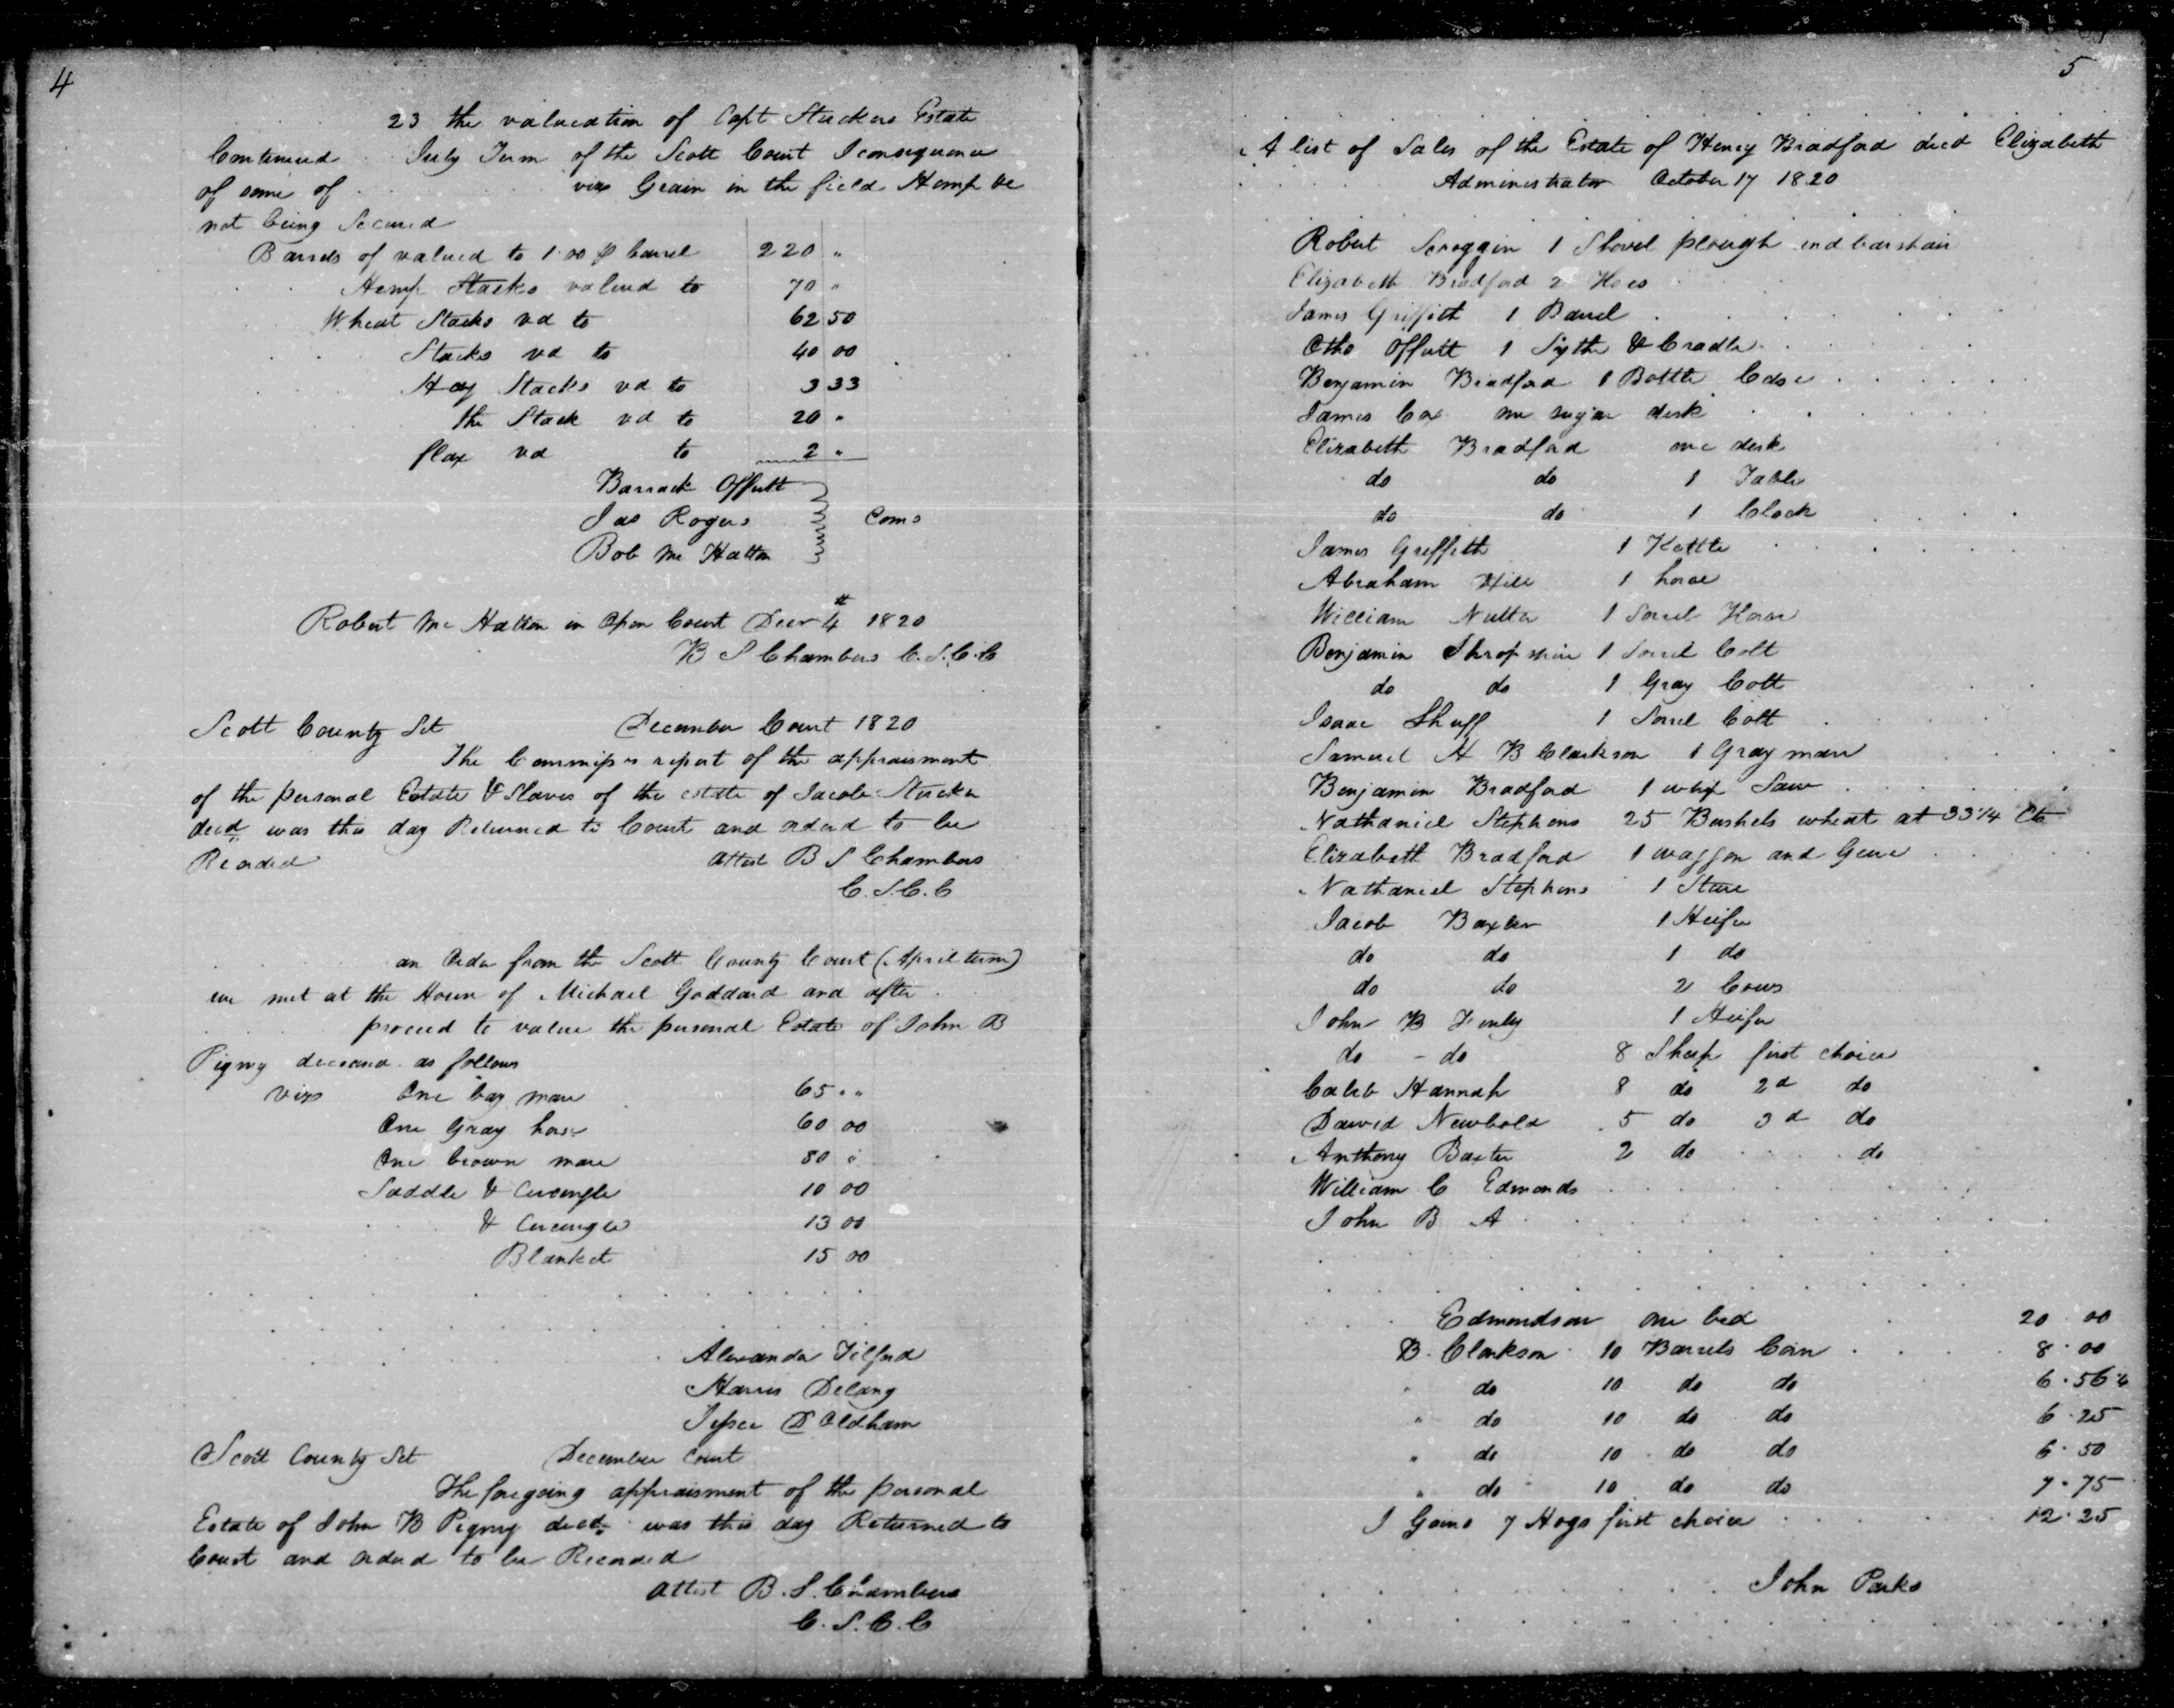 4
23 the valuation of Capt Stuckers Estate
Continued July Term of the Scott Court I consequence
of some of vizs Grain in the field Hemp &c
not being Secured
Barrels of valued to 1.00 p barrel 220 "
Hemp Stacks valued to 70 "
Wheat Stacks vd to 62 50
Stacks vd to 40 00
Hay Stacks vd to 3 33
the Stack vd to 20 "
flax vd to 2 "
Barrack Offutt
Jas Rogers Coms
Bob Mc Hatton
Robert Mc Hatton in Open Court Decr 4th 1820
B S Chambers C.S.C.C
Scott County Sct December Court 1820
The Commiss report of the appraisment
of the personal Estate & Slaves of the estate of Jacob Stucker
decd was this day Returned to Court and orderd to be
Recorded attest B S Chambers
C.S.C.C
an Order from the Scott County Court (April term)
we met at the House of Michael Goddard and after
proceed to value the personal Estate of John B
Pigmy deceased as follows
vizs One bay mare 65 " "
One Gray horse 60 00
One brown mare 80 "
Saddle & Circingle 10 00
& Circingle 13 00
Blanket 15 00
Alexander Tilford
Harris Delany
Jessee D Oldham
Scott County Sct December Court
The foregoing appraisment of the personal
Estate of John B Pigmy decd was this day Returned to
Court and orderd to be Recorded
Attest B. S. Chambers
C.S.C.C
5
A list of Sales of the Estate of Henry Bradford decd Elizabeth
Administrator October 17 1820
Robert Scroggin 1 Shovel plough and barshair
Elizabeth Bradford 2 Hoes
James Griffith 1 Barrel
Otho Offutt 1 Sythe & Cradle
Benjamin Bradford 1 Bottle Case
James Cox one sugar desk
Elizabeth Bradford one desk
do do 1 Table
do do 1 Clock
James Greffeth 1 Kettle
Abraham Hill 1 horse
William Nutter 1 Sorrel Horse
Benjamin Shropshire 1 Sorrel Colt
do do 1 Gray Colt
Isaac Shuff 1 Sorrel Colt
Samuel H B Clarkson 1 Gray mare
Benjamin Bradford 1 whip Saw
Nathaniel Stephens 25 Bushels wheat at 33 1/4 Cts
Elizabeth Bradford 1 waggon and Geare
Nathaniel Stephens 1 Steer
Jacob Baxter 1 Heifer
do do 1 do
do do 2 Cows
John B Finly 1 Heifer
do - do 8 Sheep first choice
Caleb Hannah 8 do 2d do
David Newbold 5 do 3d do
Anthony Baxter 2 do do
William C Edmonds
John B A
Edmondson one bed 20.00
B. Clarkson 10 Barrels Corn 8.00
" do 10 do do 6.56 1/4
" do 10 do do 6.25
" do 10 do do 6.50
" do 10 do do 7.75
J Gains 7 Hogs first choice 12.25
John Parks